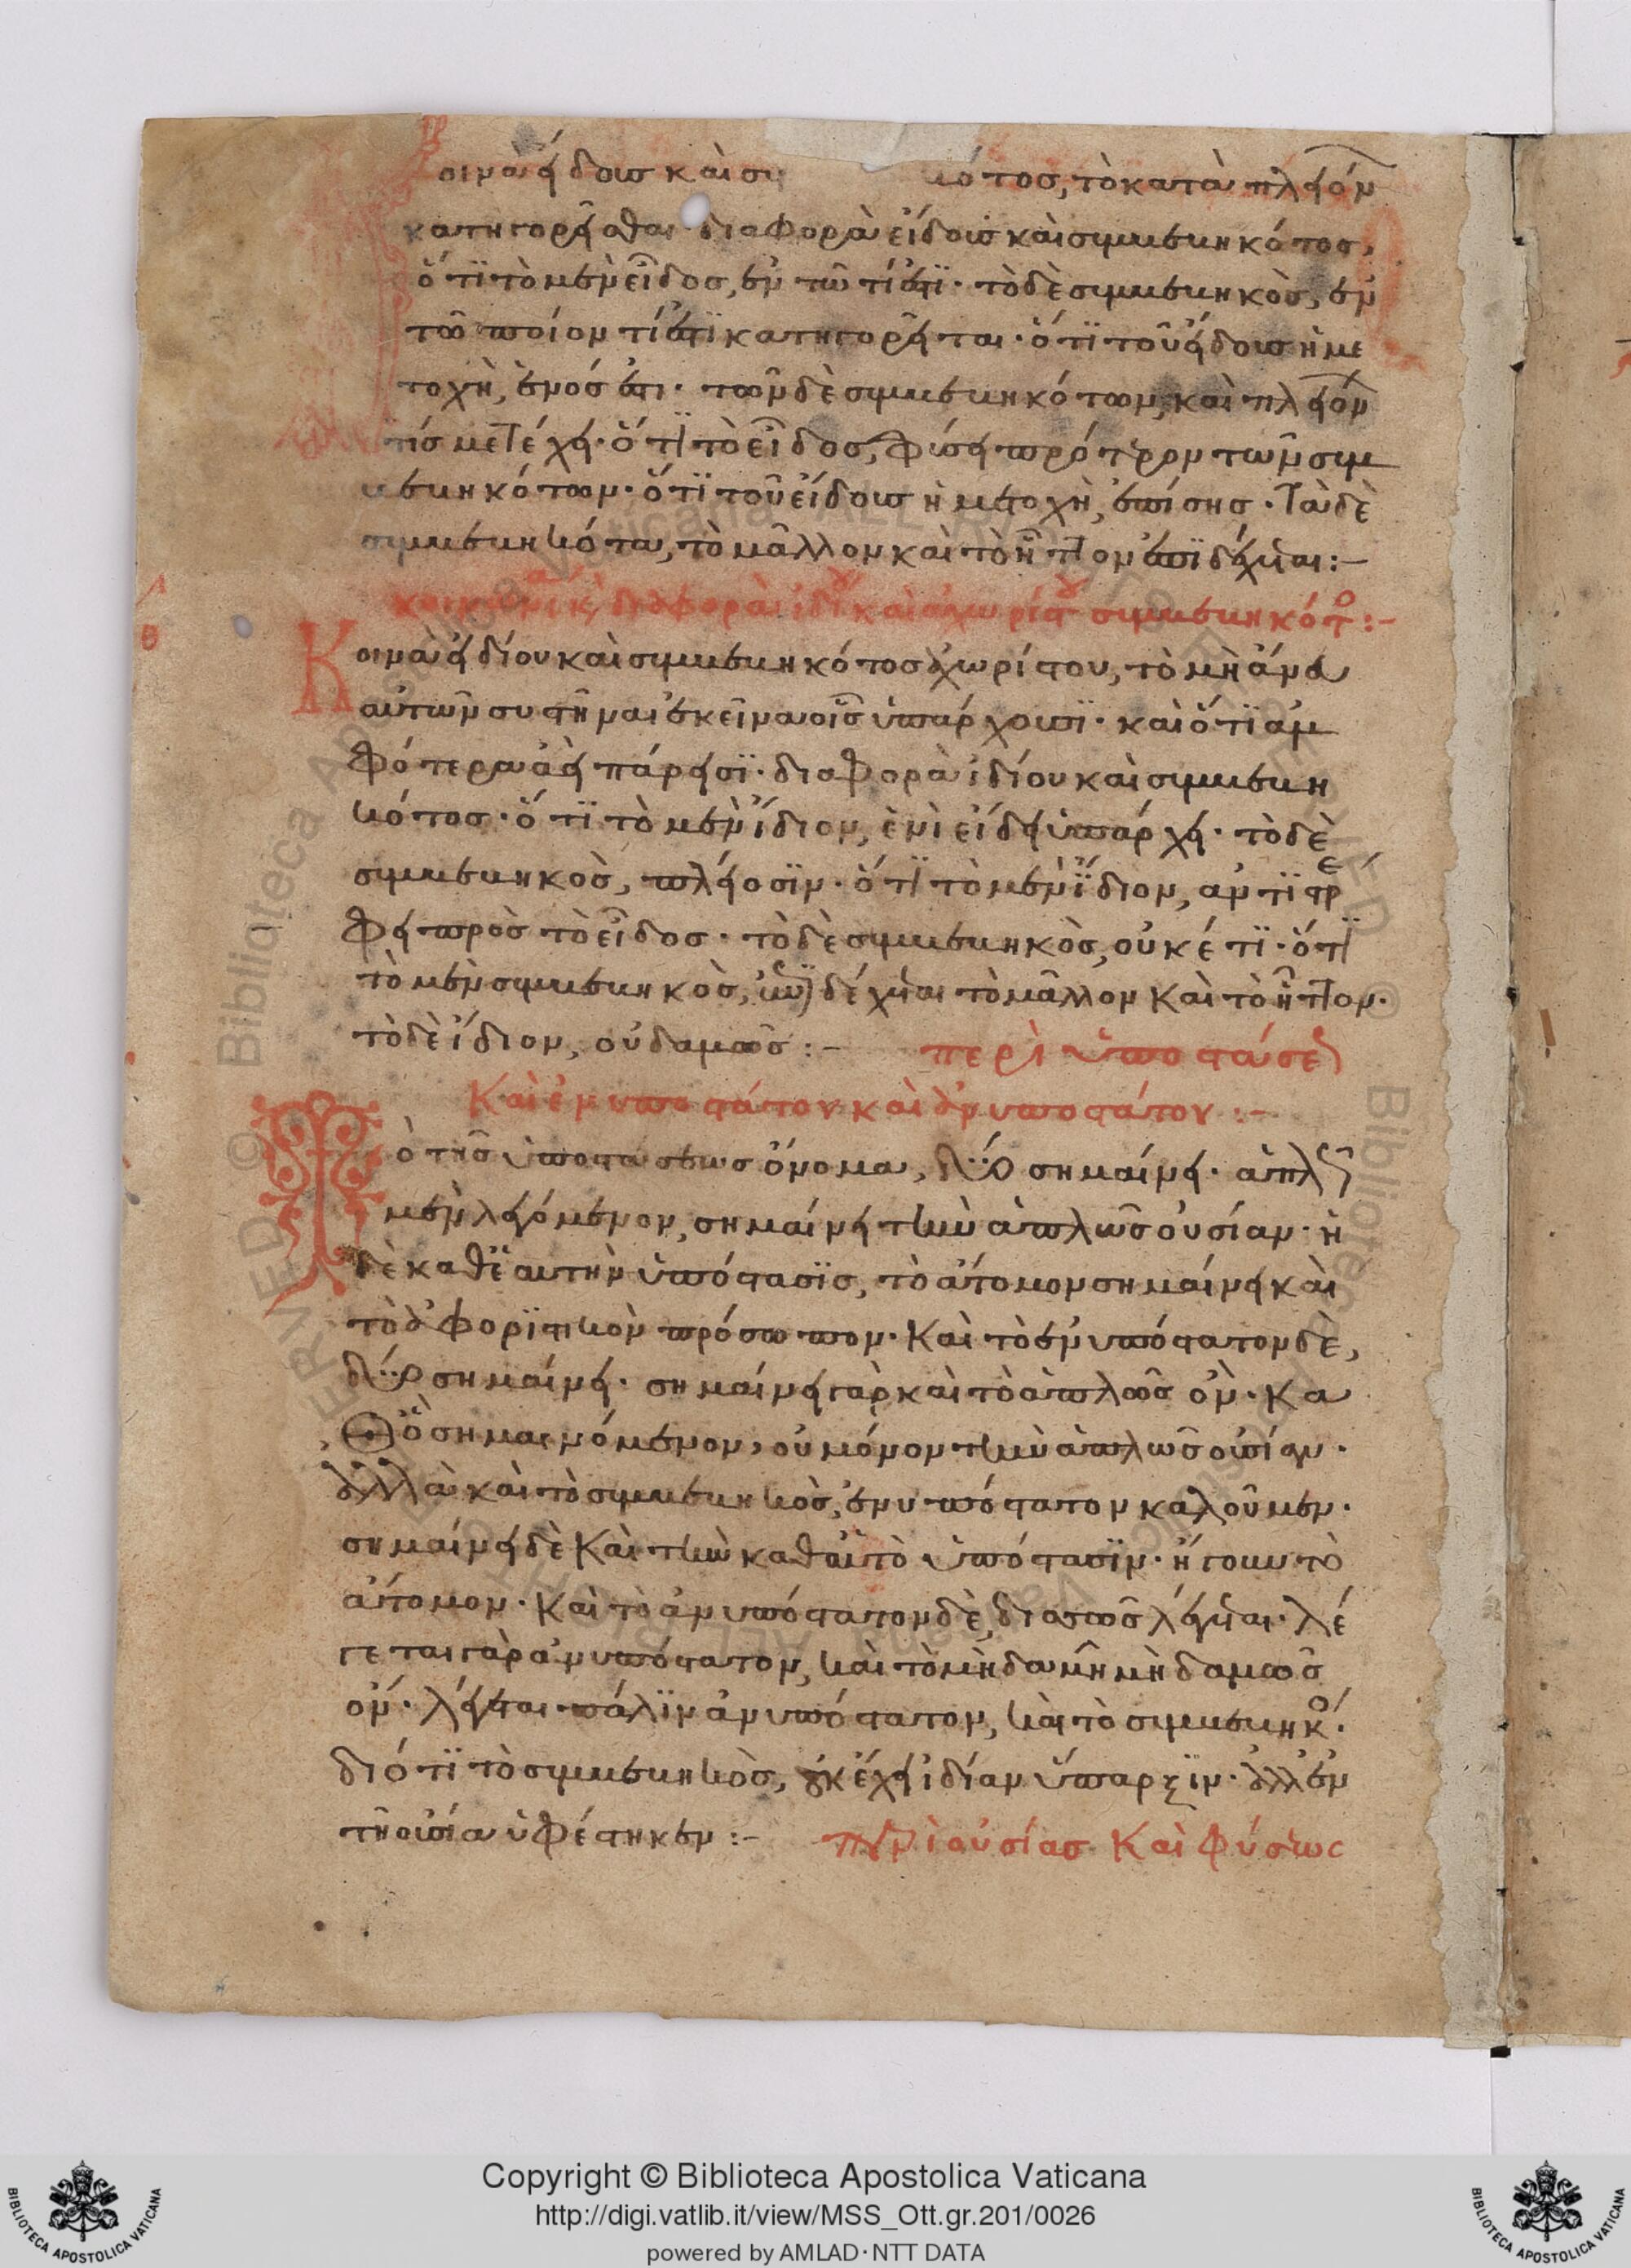 οινὰ εἴδους καὶ συ κότος, τὸ κατὰ πλειόνων
κατηγορεῖσθαι· διαφορὰ εἴδους καὶ συμβεβηκότος,
ὅτι τὸ μὲν εἶδος, ἐν τῶ τί ἐστι· τὸ δὲ συμβεβηκὸς, ἐν
τῶ ποῖον τί ἐστι κατηγορεῖται· ὅτι τοῦ εἴδους ἡ με
τοχὴ, ἑνός ἐστι· τῶν δὲ συμβεβηκότων, καὶ πλειόνων
τίς μετέχει· ὅτι τὸ εἶδος, φύσει πρότερον τῶν συμ
βεβηκότων· ὅτι τοῦ εἴδους ἡ μετοχὴ, ἐπίσης· τὰ δὲ
συμβεβηκότα, τὸ μᾶλλον καὶ τὸ ἧττον ἐπιδέχεται:–
καὶ διαφορὰ ἰδίου καὶ ἀχωρίστου συμβεβηκότος:–
Κοινὰ ἰδίου καὶ συμβεβηκότος ἀχωρίστου, τὸ μὴ ἄνευ
αὐτῶν συστῆναι ἐκεῖνα οἷς ὑπάρχουσι· καὶ ὅτι ἀμ
φότερα ἀεὶ πάρεισι· διαφορὰ ἰδίου καὶ συμβεβη
κότος· ὅτι τὸ μὲν ἴδιον, ἑνὶ εἴδει ὑπάρχει· τὸ δὲ
συμβεβηκὸς, πλείοσιν· ὅτι τὸ μὲν ἴδιον, ἀντιστρέ
φει πρὸς τὸ εἶδος· τὸ δὲ συμβεβηκὸς, οὐκέτι· ὅτι
τὸ μὲν συμβεβηκὸς, ἐπιδέχεται τὸ μᾶλλον καὶ τὸ ἧττον·
τὸ δὲ ἴδιον, οὐδαμῶς:– περὶ ὑποστάσεως
Καὶ ἐνυποστάτου καὶ ἀνυποστάτου:–
Τὸ τῆς ὑποστάσεως ὄνομα, δύο σημαίνει· ἁπλῶς
μὲν λεγόμενον, σημαίνει τὴν ἁπλῶς οὐσίαν· ἡ
δὲ καθ' ἑαυτὴν ὑπόστασις, τὸ ἄτομον σημαίνει καὶ
τὸ ἀφοριστικὸν πρόσωπον· Καὶ τὸ ἐνυπόστατον δὲ,
δύο σημαίνει· σημαίνει γὰρ καὶ τὸ ἁπλῶς ὄν· Κα
θὸ σημαινόμενον, οὐ μόνον τὴν ἁπλῶς οὐσίαν·
ἀλλὰ καὶ τὸ συμβεβηκὸς, ἐνυπόστατον καλοῦμεν·
σημαίνει δὲ Καὶ τὴν καθ' αὑτὸ ὑπόστασιν· ἤγουν τὸ
ἄτομον· Καὶ τὸ ἀνυπόστατον δὲ, δισσῶς λέγεται· λέ
γεται γὰρ ἀνυπόστατον, καὶ τὸ μηδαμῆ μηδαμῶς
ὄν· λέγεται πάλιν ἀνυπόστατον, καὶ τὸ συμβεβηκός·
διότι τὸ συμβεβηκὸς, οὐκ ἔχει ἰδίαν ὕπαρξιν· ἀλλ' ἐν
τῆ οὐσία ὑφέστηκεν:– περὶ οὐσίας Καὶ φύσεως
Copyright © Biblioteca Apostolica Vaticana
http://digi.vatlib.it/view/MSS_Ott.gr.201/0026
powered by AMLAD·NTT DATA
BIBLIOTECA APOSTOLICA VATICANA
BIBLIOTECA APOSTOLICA VATICANA